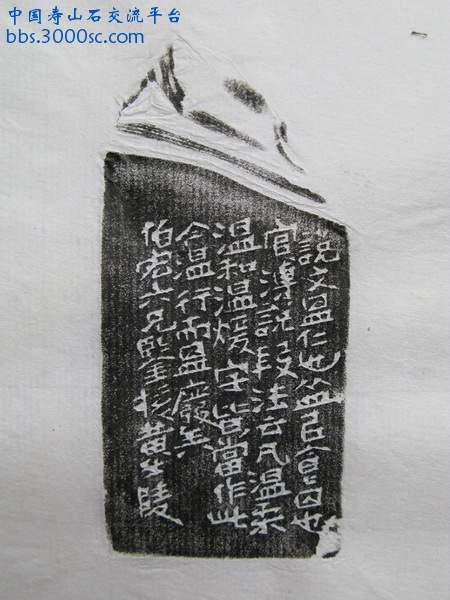 中国寿山石交流平台
bbs.3000sc.com
説文昷仁也从皿㠯食囚也
官溥説段注云凡温柔
温和温煖字皆當作此
今温行而昷廢矣
伯六兄黄士陵